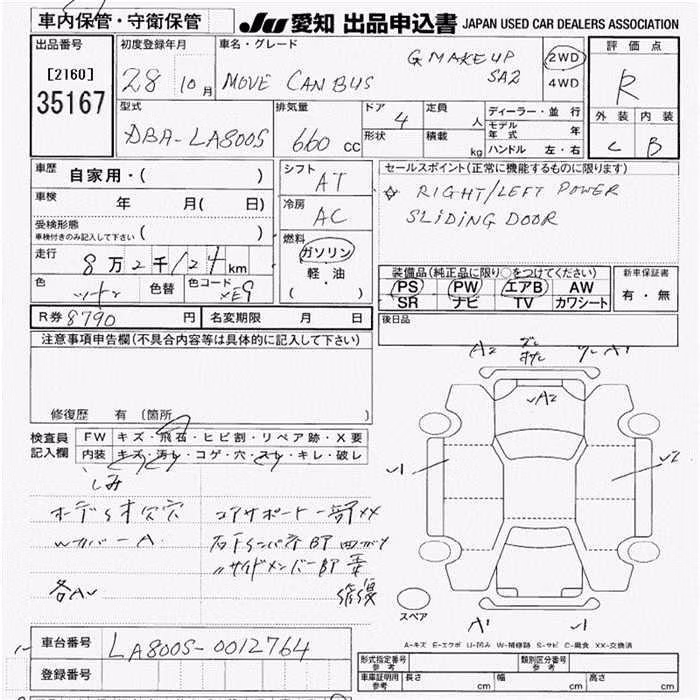 車内保管・守衛保管
JU 愛知 出品申込書 JAPAN USED CAR DEALERS ASSOCIATION
出品番号
[2160]
35167
初度登録年月
28 10月
車名・グレード
MOVE CANBUS
G MAKEUP
SA2
2WD
4WD
評価点
R
外装 内装
C B
型式
DBA-LA800S
排気量
660 cc
ドア 4
形状
定員 人
積載 kg
ディーラー・並行
モデル年式 年
ハンドル 左・右
車歴 自家用・( )
車検 年 月( 日)
受検形態
車検付きのみ記入して下さい ( )
走行 8万2千124km
色 色替 色コード XE9
シフト AT
冷房 AC
燃料
ガソリン
軽・油
( )
セールスポイント(正常に機能するものに限ります)
☆ RIGHT/LEFT POWER
SLIDING DOOR
装備品(純正品に限り○をつけてください)
PS PW エアB AW
SR ナビ TV カワシート
新車保証書
有・無
R券 8790 円 名変期限 月 日
後日品
注意事項申告欄(不具合内容等は具体的に記入して下さい)
修復歴 有 (箇所 )
検査員記入欄
FW キズ・飛石・ヒビ割・リペア跡・X要
内装 キズ・汚れ・コゲ・穴・スレ・キレ・破レ
しみ
コアサポート一部XX
各AU
修復
A2
A2
スペア
A-キズ E-エクボ U-凹み W-補修跡 S-サビ C-腐食 XX-交換済
車台番号 LA800S-0012764
登録番号
型式指定番号 参考
類別区分番号 参考
車庫証明用 参考 長さ cm 幅 cm 高さ cm